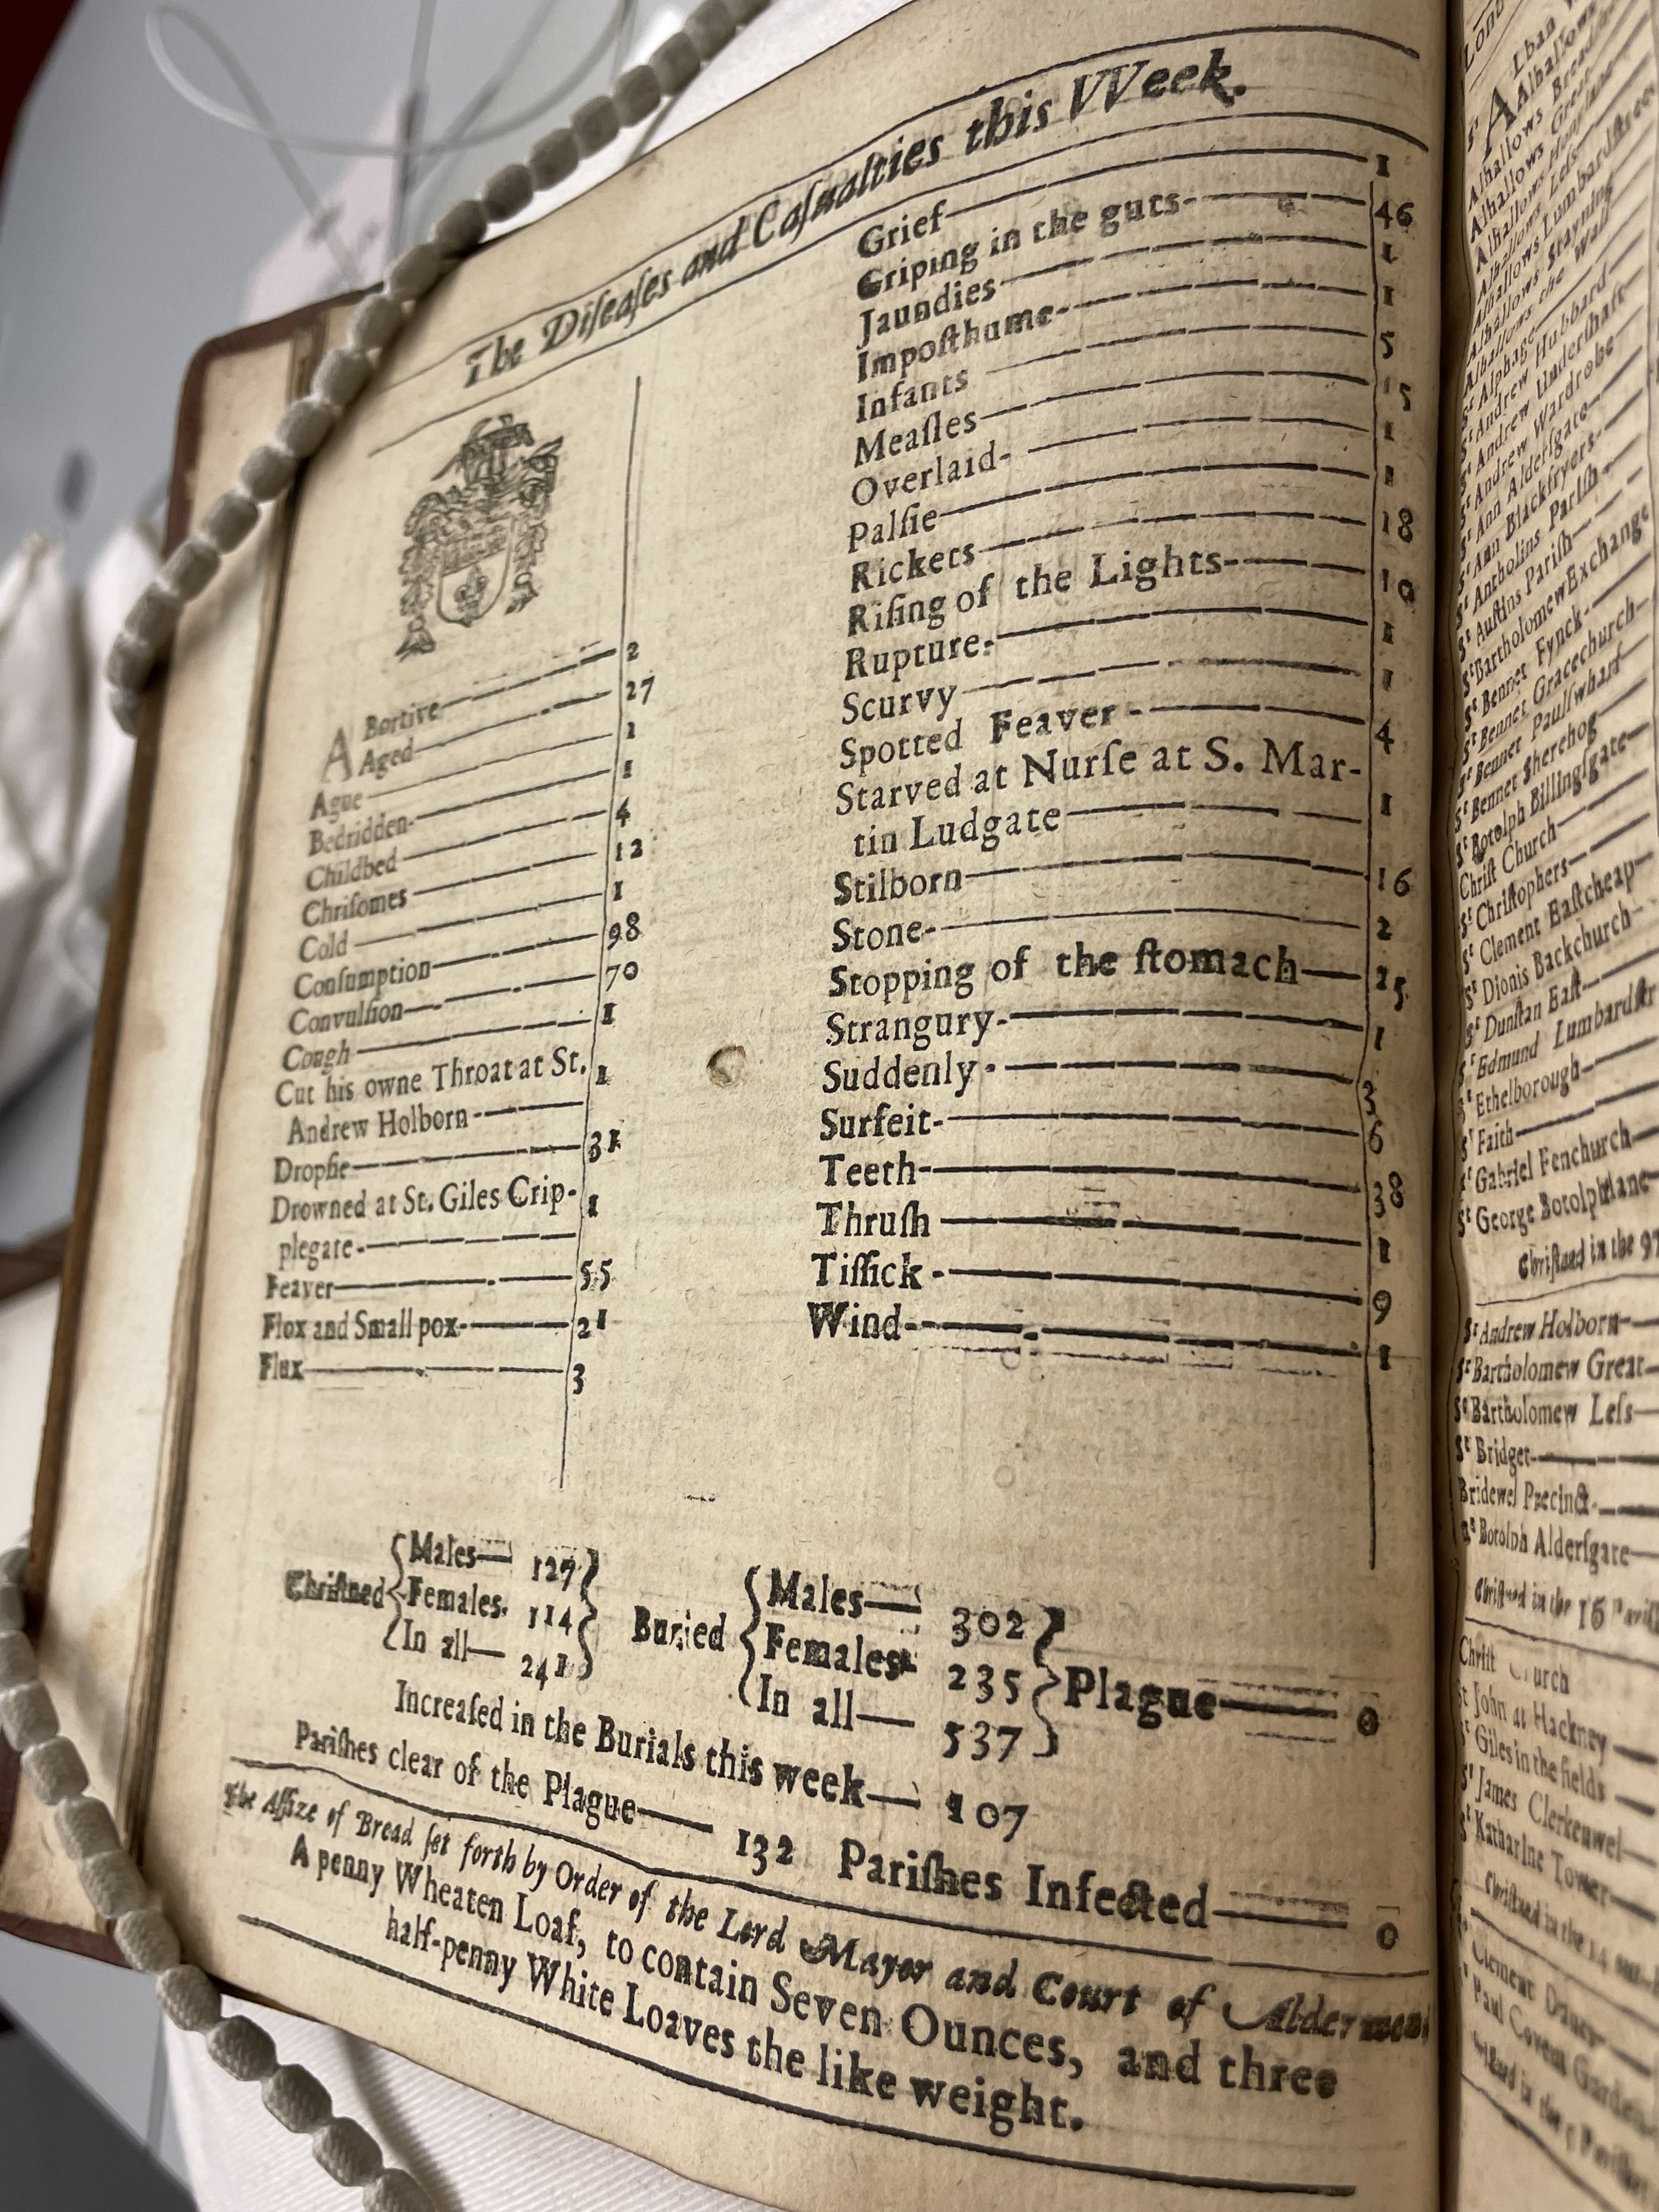 The Diſeaſes and Caſualties this VVeek.
ABortive 2
Aged 27
Ague 1
Bedridden 1
Childbed 4
Chriſomes 12
Cold 1
Conſumption 98
Convulſion 70
Cough 1
Cut his owne Throat at St.
Andrew Holborn 1
Dropſie 31
Drowned at St. Giles Crip-
plegate 1
Feaver 55
Flox and Small pox 21
Flux 3
Grief 1
Griping in the guts 46
Jaundies 1
Impoſthume 1
Infants 5
Meaſles 15
Overlaid 1
Palſie 1
Rickets 18
Riſing of the Lights 19
Rupture 1
Scurvy 1
Spotted Feaver 4
Starved at Nurſe at S. Mar-
tin Ludgate 1
Stilborn 16
Stone 2
Stopping of the ſtomach 25
Strangury 1
Suddenly 3
Surfeit 6
Teeth 38
Thruſh 1
Tiſſick 9
Wind 1
Chriſtned
Males 127
Females 114
In all 241
Buried
Males 302
Females 235
In all 537
Plague 0
Increaſed in the Burials this week 107
Pariſhes clear of the Plague 132 Pariſhes Infected 0
The Aſſize of Bread ſet forth by Order of the Lord Mayor and Court of Aldermen
A penny Wheaten Loaf, to contain Seven Ounces, and three
half-penny White Loaves the like weight.
Alhallows
Alhallows
Alhallows Great
Alhallows
Alhallows Leſs
Alhallows Lumbardſtreet
Alhallows Stayning
Alhallows the Wall
Sᵗ Alphage
Sᵗ Andrew Hubbard
Sᵗ Andrew Underſhaft
Sᵗ Andrew Wardrobe
Sᵗ Ann Alderſgate
Sᵗ Ann Blackfryers
Sᵗ Antholins Pariſh
Sᵗ Auſtins Pariſh
Sᵗ Bartholomew Exchange
Sᵗ Bennet Fynck
Sᵗ Bennet Gracechurch
Sᵗ Bennet Paulſwharf
Sᵗ Bennet Sherehog
Sᵗ Botolph Billingſgate
Chriſt Church
Sᵗ Chriſtophers
Sᵗ Clement Eaſtcheap
Sᵗ Dionis Backchurch
Sᵗ Dunſtan Eaſt
Sᵗ Edmund Lumbardſtr
Sᵗ Ethelborough
Sᵗ Faith
Sᵗ Gabriel Fenchurch
Sᵗ George Botolphlane
Chriſtned in the 97
Sᵗ Andrew Holborn
Sᵗ Bartholomew Great
Sᵗ Bartholomew Leſs
Sᵗ Bridget
Bridewel Precinct
Botolph Alderſgate
Chriſtned in the 16
Chriſt Church
St John at Hackney
Sᵗ Giles in the fields
Sᵗ James Clerkenwel
Sᵗ Katharine Tower
Chriſtned in the 14
Clement Danes
Paul Covent Garden
in the 5